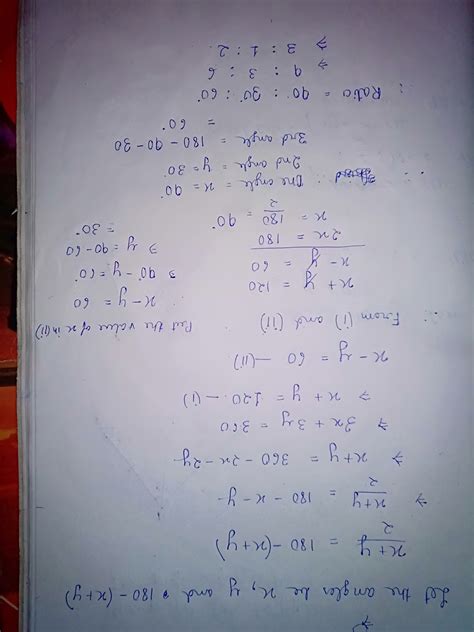 Let the angles be x, y and 180-(x+y)
x+y/2 = 180-(x+y)
⇒ x+y/2 = 180 - x - y
⇒ x+y = 360 - 2x - 2y
⇒ 3x + 3y = 360
⇒ x + y = 120 - (i)
x - y = 60 - (ii)
From (i) and (ii)
x + y = 120
x - y = 60
2x = 180
x = 180/2 = 90°
Put the value of x in (ii)
x - y = 60
⇒ 90° - y = 60°
⇒ y = 90 - 60
= 30°
: One angle = x = 90°
2nd angle = y = 30°
3rd angle = 180 - 90 - 30
= 60°
: Ratio = 90° : 30° : 60°
⇒ 9 : 3 : 6
⇒ 3 : 1 : 2